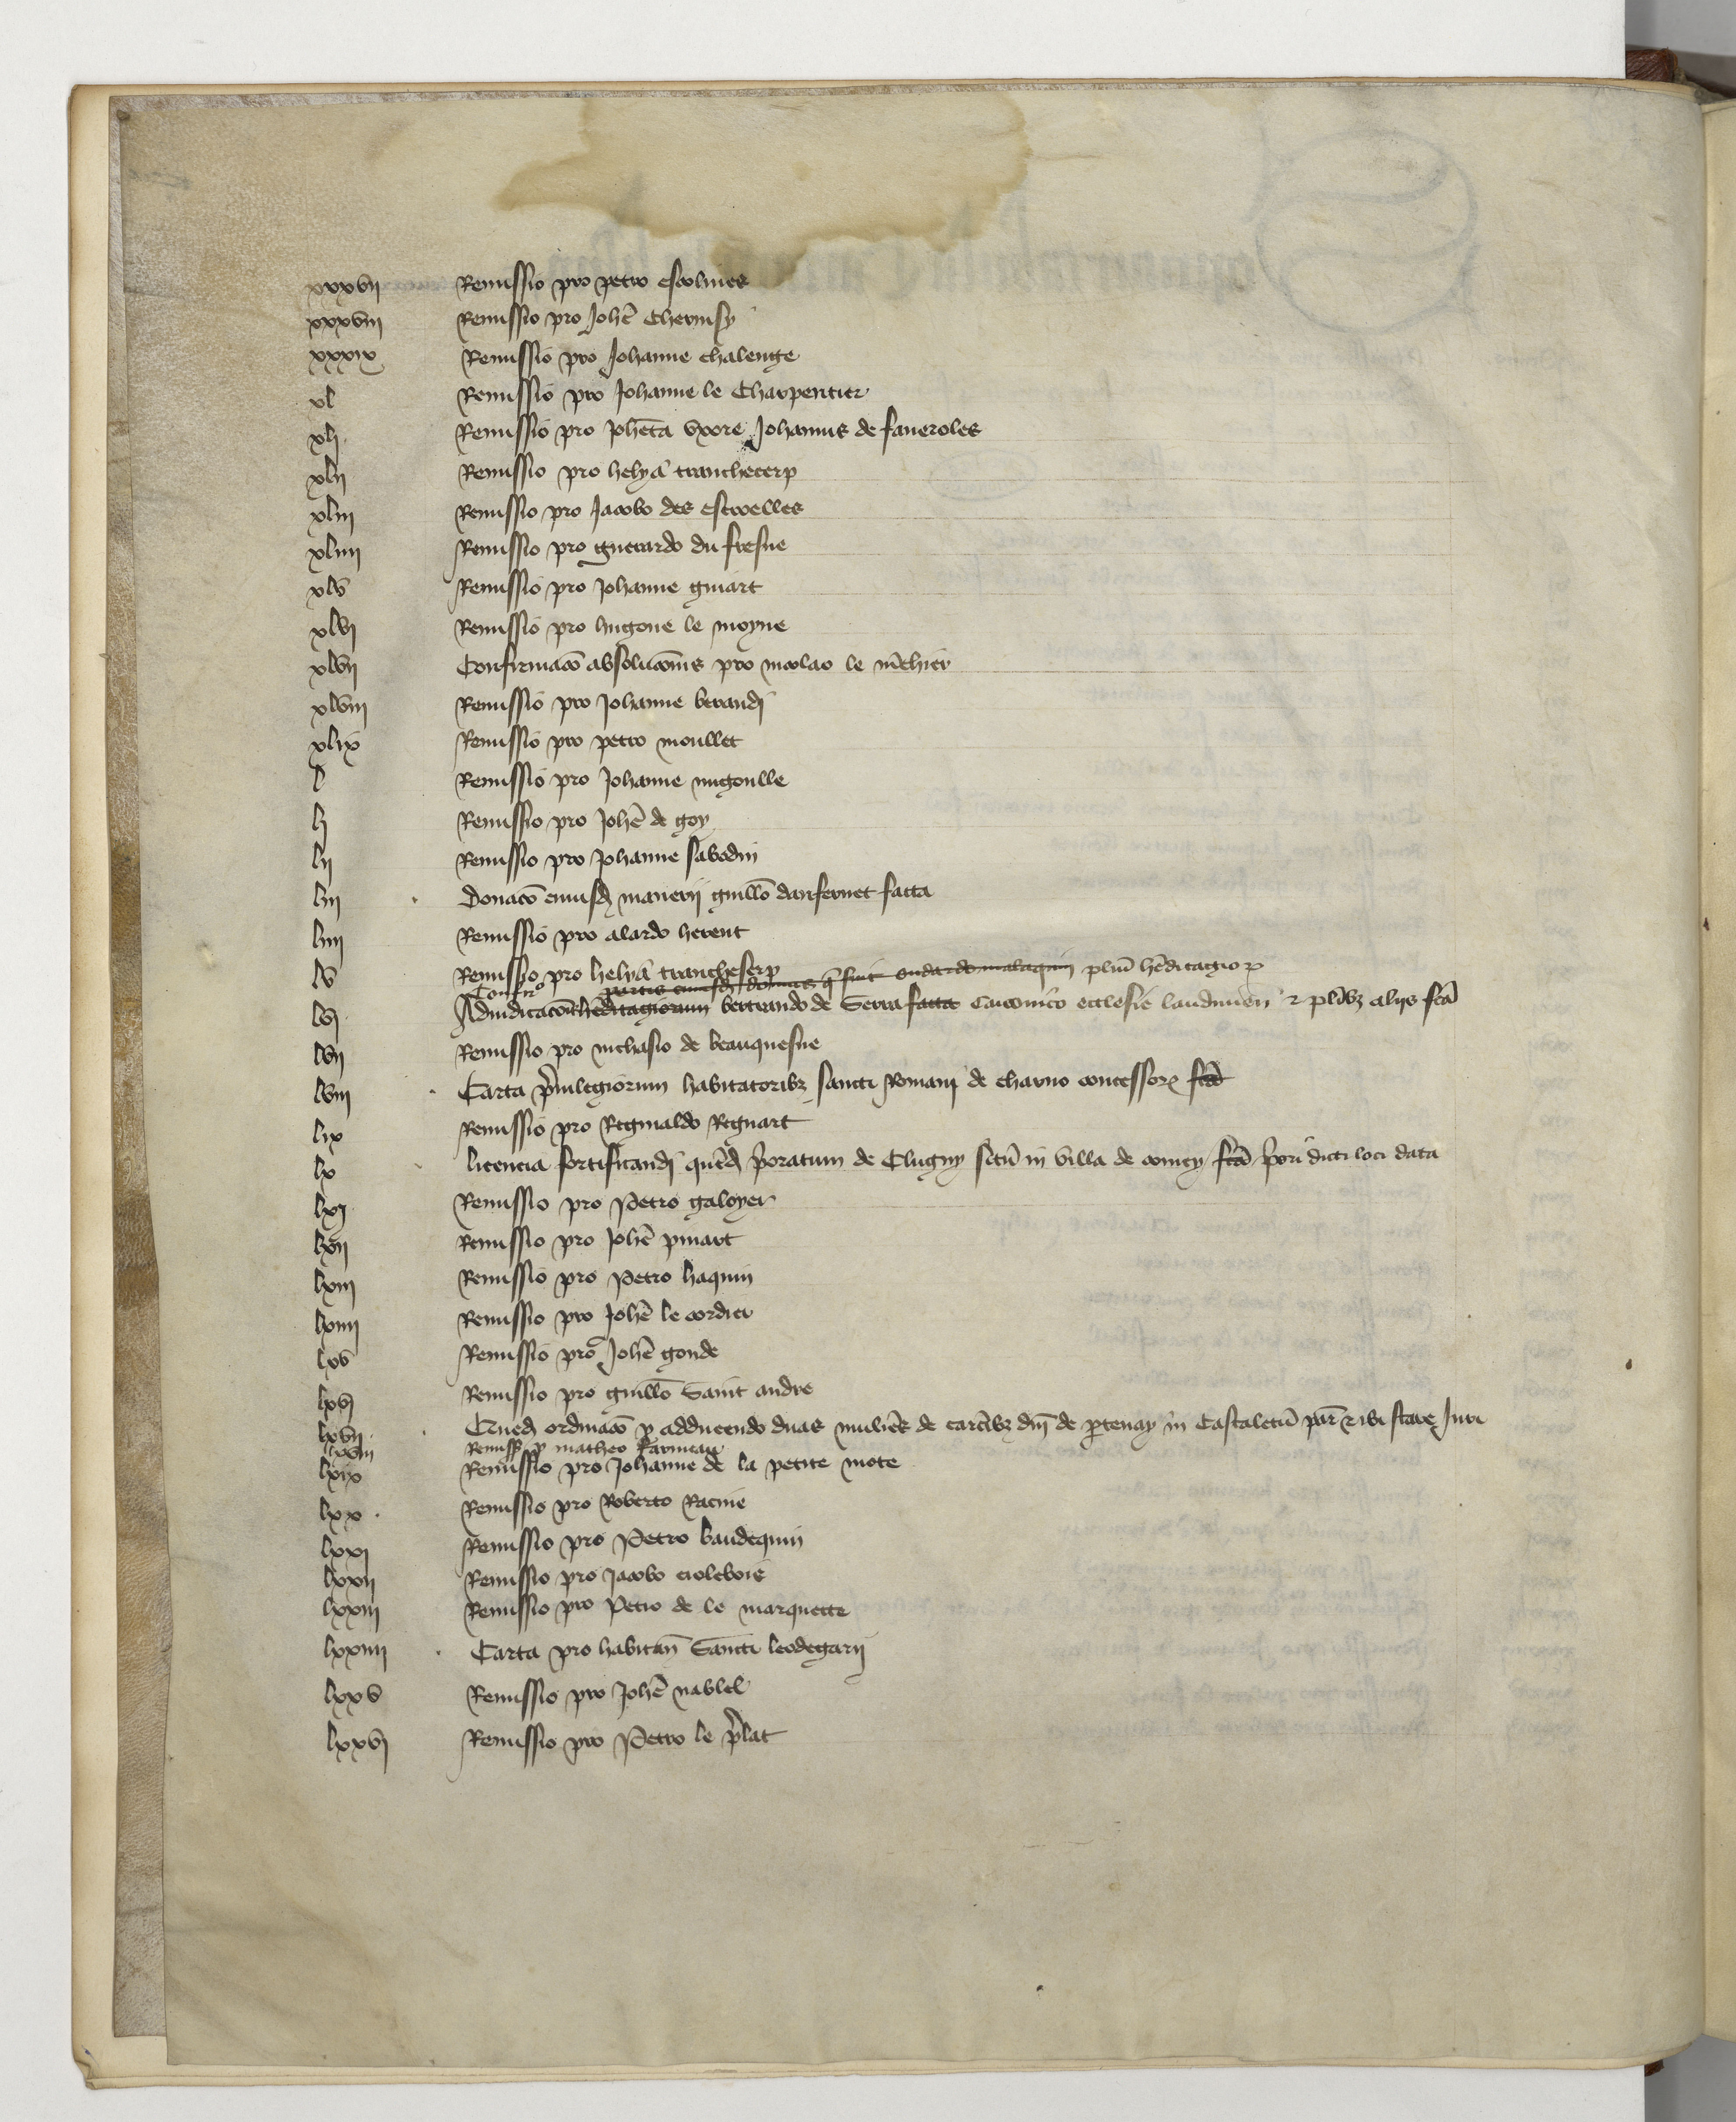 xxxvii Remissio pro petro escolines
xxxviii Remissio pro Joh̄e Chermsy
xxxix Remissio pro Johanne chalenge
xl Remissio pro Johanne le Charpentier
xli Remissio pro Joh̄eta uxore Johannis de faueroles
xlii Remissio pro helya tranchecerp
xliii Remissio pro Jacobo des estroelles
xliiii Remissio pro guerardo du fresne
xlv Remissio pro Johanne guiart
xlvi Remissio pro hugone le moyne
xlvii Confirmac̄o absoluc̄onis pro nicolao le m̄chier
xlviii Remissio pro Johanne beraudi
xlix Remissio pro petro moullet
l Remissio pro Johanne migoulle
li Remissio pro Joh̄e de goy
lii Remissio pro Johanne sabodin
liii Donac̄o cuiusd̄ manerij guill̄o danfernet facta
liiii Remissio pro alardo herent
lv Remissio pro helya trancheserp
Confir̄o partis cuiusd̄ domus q̄ fuit oudardo malaquin plur̄ h̄editagior
lvi Adiudicac̄ois h̄editagiorum bertrando de Serra facta Canonico ecclesie laudunen̄ & plūbz alijs fc̄a
lvii Remissio pro nichasio de beauquesne
lviii Carta p̄uilegiorum habitatoribz sancti Romani de charno concessor fc̄a
lix Remissio pro Reginaldo Regnart
lx licencia fortificandi quēd̄ p̄oratum de Clugny sitū in villa de coincy fc̄a p̄ori dicti loci data
lxi Remissio pro Petro galoyer
lxii Remissio pro Joh̄e pinart
lxiii Remissio pro Petro haquin
lxiiii Remissio pro Joh̄e le cordier
lxv Remissio pro Joh̄e gonde
lxvi Remissio pro guill̄o Saint andre
lxvii Cuiusd̄ ordinac̄o p adducendo duas mulier̄s de carc̄ibz dn̄i de ptenay in Castaletū par̄ & ibi stare Juri
lxviii Remiss̄ p matheo Karuicau
lxix Remissio pro Johanne de la petite mote
lxx Remissio pro Roberto Racine
lxxi Remissio pro Petro baudequin
lxxii Remissio pro Jacobo crolebois
lxxiii Remissio pro Petro de le marquette
lxxiiii Carta pro habitan̄ Sancti leodegarij
lxxv Remissio pro Joh̄e nablel
lxxvi Remissio pro Petro le p̄lat